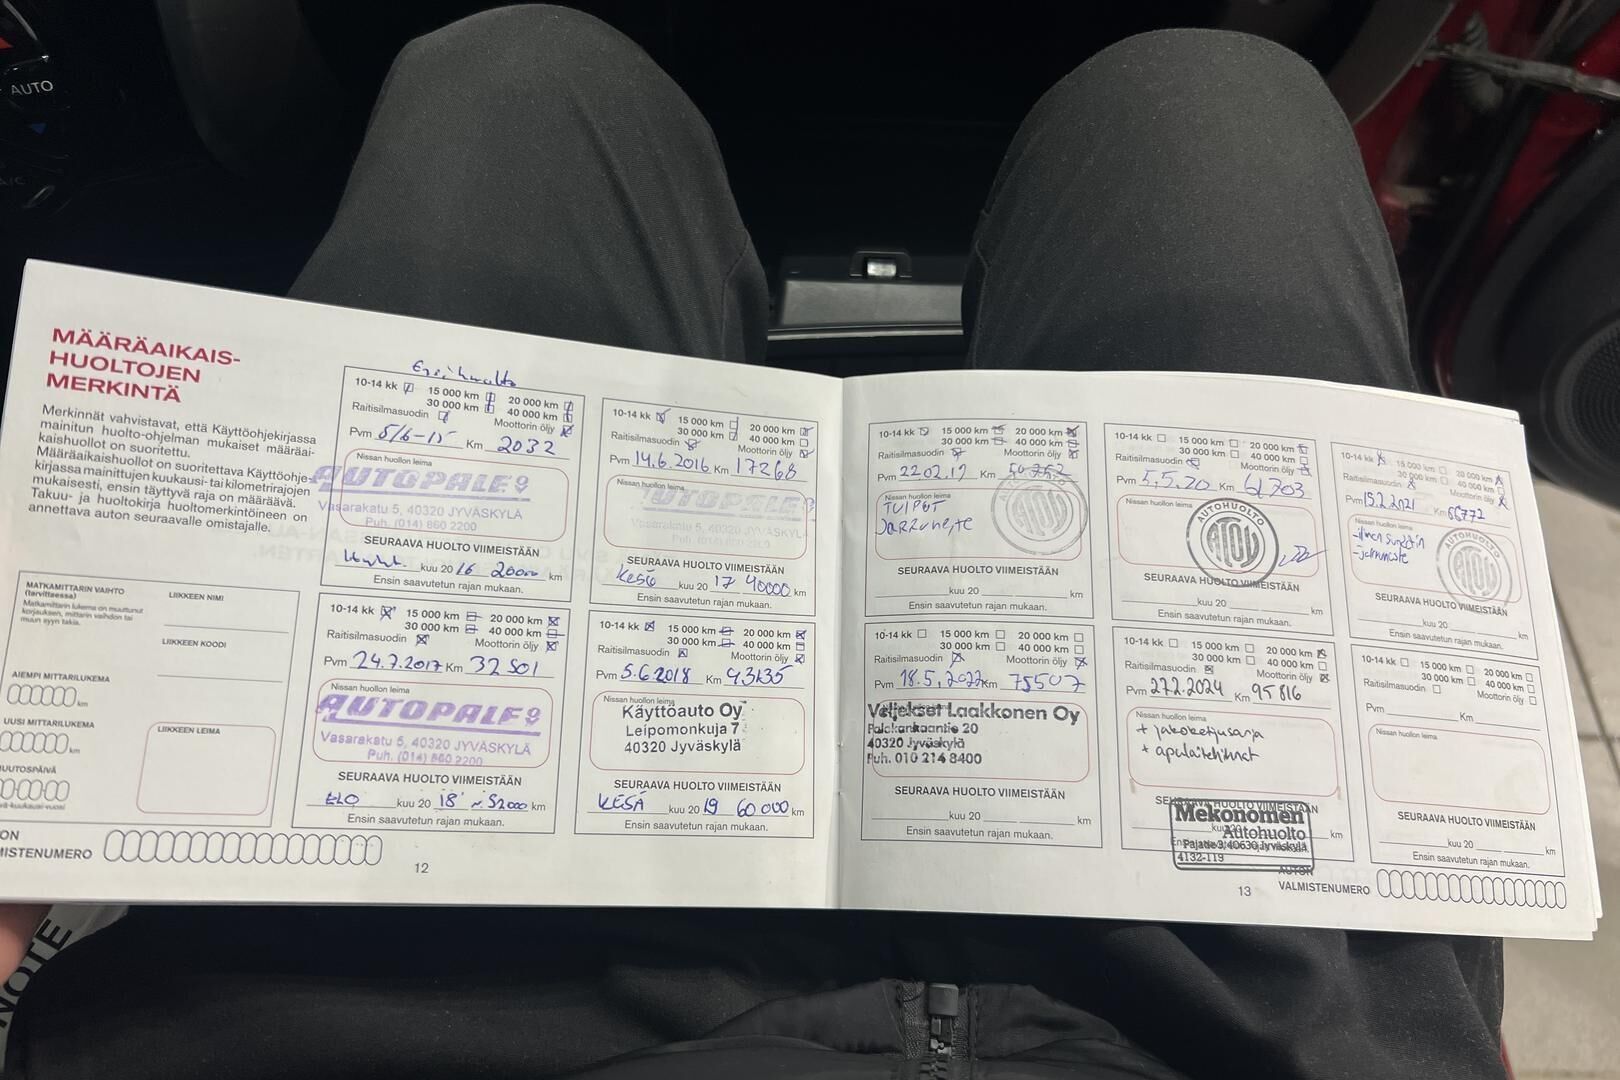 AUTO
A/C
MÄÄRÄAIKAIS-
HUOLTOJEN
MERKINTÄ
Merkinnät vahvistavat, että Käyttöohjekirjassa
mainitun huolto-ohjelman mukaiset määräai-
kaishuollot on suoritettu.
Määräaikaishuollot on suoritettava Käyttöohje-
kirjassa mainittujen kuukausi- tai kilometrirajojen
mukaisesti, ensin täyttyvä raja on määräävä.
Takuu- ja huoltokirja huoltomerkintöineen on
annettava auton seuraavalle omistajalle.
MATKAMITTARIN VAIHTO
(tarvittaessa)
Matkamittarin lukema on muuttunut
korjauksen, mittarin vaihdon tai
muun syyn takia.
LIIKKEEN NIMI
LIIKKEEN KOODI
AIEMPI MITTARILUKEMA
km
UUSI MITTARILUKEMA
km
MUUTOSPÄIVÄ
LIIKKEEN LEIMA
VALMISTENUMERO
Ensihuolto
10-14 kk 15 000 km 20 000 km
30 000 km 40 000 km
Raitisilmasuodin Moottorin öljy
Pvm 5/6-15 Km 2032
Nissan huollon leima
AUTOPALE oy
Vasarakatu 5, 40320 JYVÄSKYLÄ
Puh. (014) 860 2200
SEURAAVA HUOLTO VIIMEISTÄÄN
kuu 20 16 20000 km
Ensin saavutetun rajan mukaan.
10-14 kk 15 000 km 20 000 km
30 000 km 40 000 km
Raitisilmasuodin Moottorin öljy
Pvm 14.6.2016 Km 17268
Nissan huollon leima
AUTOPALE oy
Vasarakatu 5, 40320 JYVÄSKYLÄ
SEURAAVA HUOLTO VIIMEISTÄÄN
Kesä kuu 20 17 40000 km
Ensin saavutetun rajan mukaan.
10-14 kk 15 000 km 20 000 km
30 000 km 40 000 km
Raitisilmasuodin Moottorin öljy
Pvm 24.7.2017 Km 32501
Nissan huollon leima
AUTOPALE oy
Vasarakatu 5, 40320 JYVÄSKYLÄ
Puh. (014) 860 2200
SEURAAVA HUOLTO VIIMEISTÄÄN
ELO kuu 20 18 n. 52000 km
Ensin saavutetun rajan mukaan.
10-14 kk 15 000 km 20 000 km
30 000 km 40 000 km
Raitisilmasuodin Moottorin öljy
Pvm 5.6.2018 Km
Nissan huollon leima
Käyttöauto Oy
Leipomonkuja 7
40320 Jyväskylä
SEURAAVA HUOLTO VIIMEISTÄÄN
KESÄ kuu 20 19 60 000 km
Ensin saavutetun rajan mukaan.
12
10-14 kk 15 000 km 20 000 km
30 000 km 40 000 km
Raitisilmasuodin Moottorin öljy
Pvm 22.02.19 Km
Nissan huollon leima
TULPAT
Jarruneste
SEURAAVA HUOLTO VIIMEISTÄÄN
kuu 20 km
Ensin saavutetun rajan mukaan.
10-14 kk 15 000 km 20 000 km
30 000 km 40 000 km
Raitisilmasuodin Moottorin öljy
Pvm 5.5.20 Km 61703
Nissan huollon leima
AUTOHUOLTO
ATOL
SEURAAVA HUOLTO VIIMEISTÄÄN
kuu 20 km
Ensin saavutetun rajan mukaan.
10-14 kk 15 000 km 20 000 km
30 000 km 40 000 km
Raitisilmasuodin Moottorin öljy
Pvm 15.2.2021 Km 66772
Nissan huollon leima
-ilman suodatin
-jarruneste
AUTOHUOLTO
ATOL
SEURAAVA HUOLTO VIIMEISTÄÄN
kuu 20 km
Ensin saavutetun rajan mukaan.
10-14 kk 15 000 km 20 000 km
30 000 km 40 000 km
Raitisilmasuodin Moottorin öljy
Pvm 18.5.2022 Km 75507
Veljekset Laakkonen Oy
Palokankaantie 20
40320 Jyväskylä
Puh. 010 214 8400
SEURAAVA HUOLTO VIIMEISTÄÄN
kuu 20 km
Ensin saavutetun rajan mukaan.
10-14 kk 15 000 km 20 000 km
30 000 km 40 000 km
Raitisilmasuodin Moottorin öljy
Pvm 27.2.2024 Km 95816
Nissan huollon leima
+ jakoketjusarja
+ apulaitehihnat
SEURAAVA HUOLTO VIIMEISTÄÄN
km
Mekonomen
Autohuolto
Pajatie 3, 40630 Jyväskylä
4132-119
10-14 kk 15 000 km 20 000 km
30 000 km 40 000 km
Raitisilmasuodin Moottorin öljy
Pvm Km
Nissan huollon leima
SEURAAVA HUOLTO VIIMEISTÄÄN
kuu 20 km
Ensin saavutetun rajan mukaan.
13
AUTON
VALMISTENUMERO
NOTE